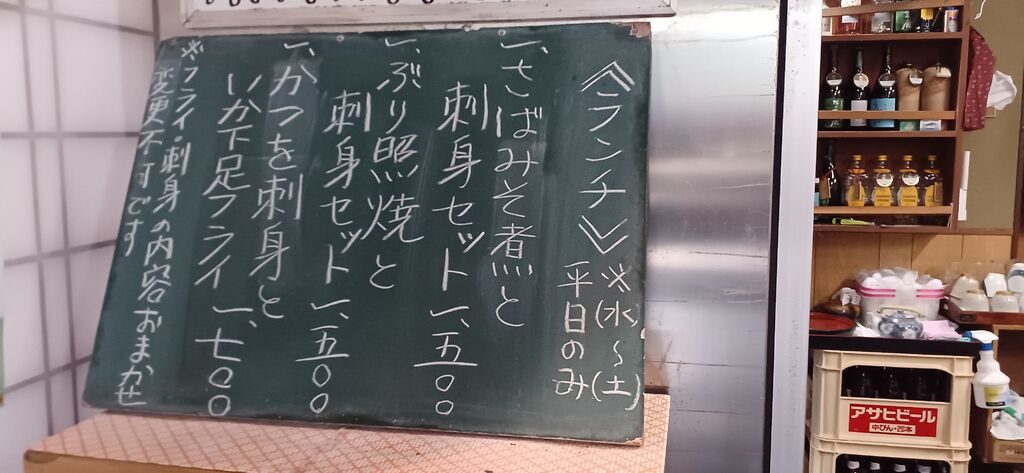 ≪ランチ≫
※(水)〜(土)
平日のみ
一、さばみそ煮と
刺身セット 一、五〇〇
一、ぶり照焼と
刺身セット 一、五〇〇
一、かつを刺身と
いか下足フライ 一、七〇〇
※フライ・刺身の内容おまかせ
変更不可です
アサヒビール
中びん・20本